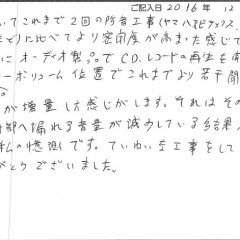 ご記入日 2016年 12
いてこれまで2回の防音工事(ヤマハ
に比べてより密閉度が高まった感じで
にオーディオ製品でCD、レコードの再生を
ーボリューム位置でこれまでより若干
が増量した感じがします。それはその
部へ漏れる音量が減少している結果
私の憶測です。ていねいな工事をして
がとうございました。